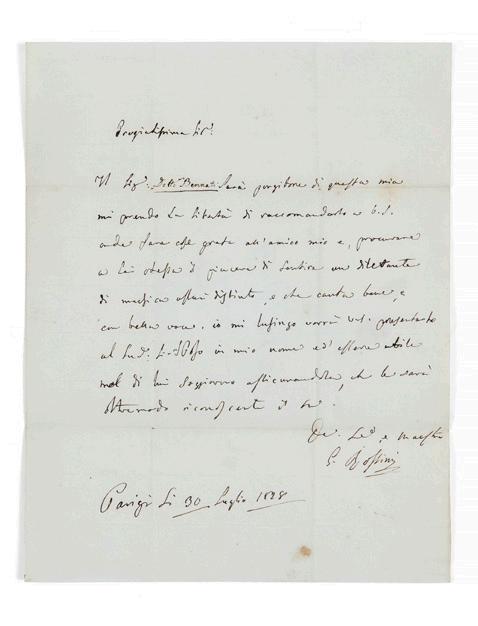 Pregiatissima Sig.ª
Il Sig.r Dott.r Bennati sarà porgitore di questa mia
mi prendo la libertà di raccomandarlo a V.S.
onde fare cosa grata all'amico mio e, procurare
a lei stessa il piacere di sentire un dilettante
di musica assai distinto, e che canta bene, e
con bella voce. io mi lusingo vorrà V.S. presentarlo
al in mio nome ed essere utile
nel di lui soggiorno assicurandola, che le sarà
oltremodo riconoscente il suo
Dev. Se.e e Maestro
G. Rossini
Parigi Li 30 Luglio 1828